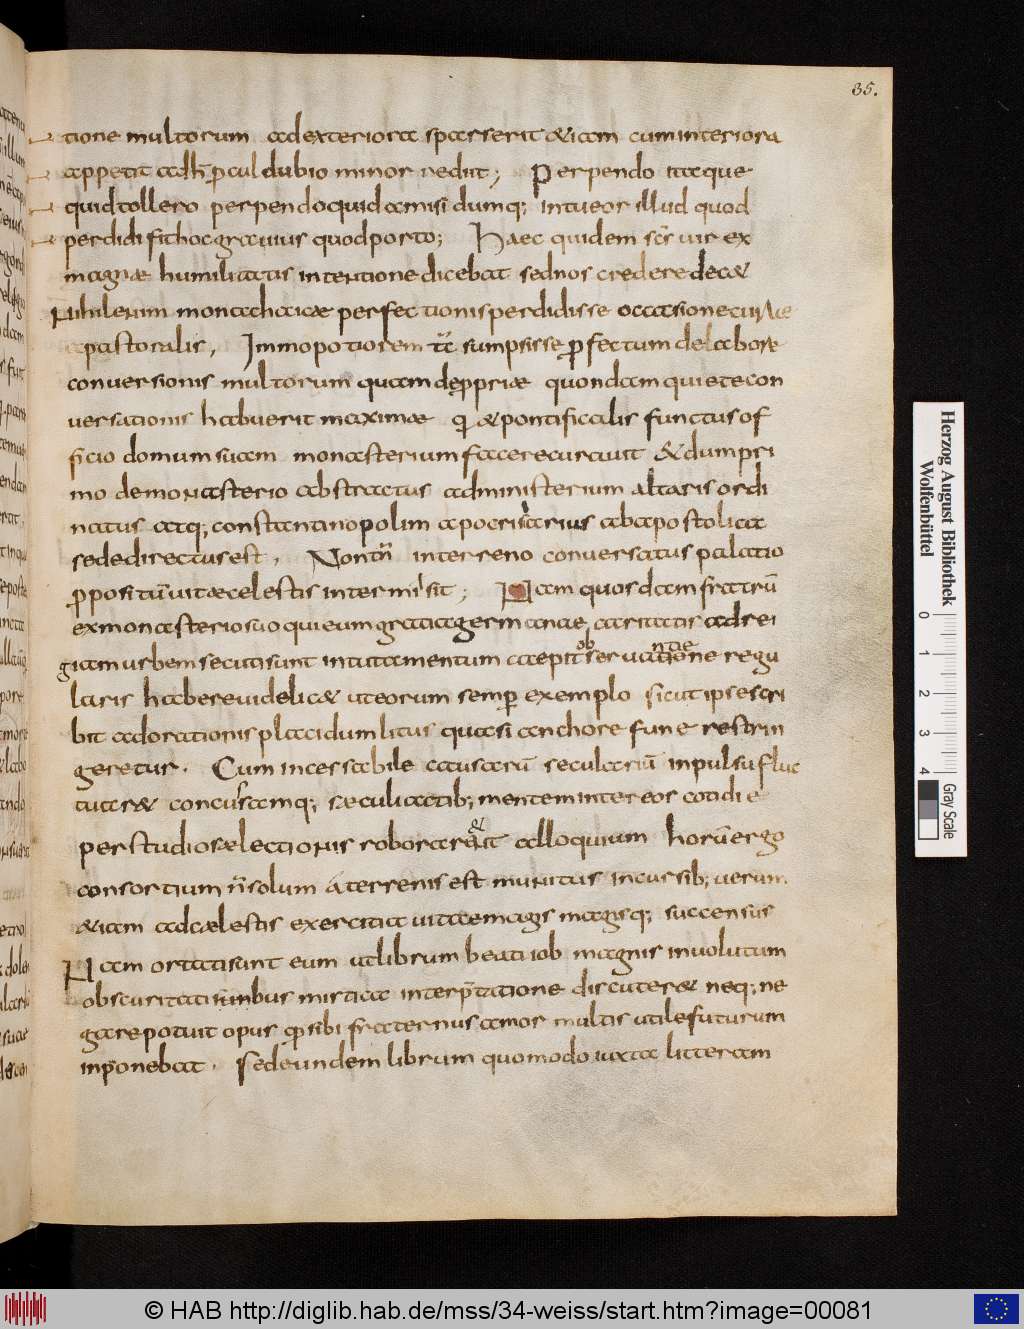 35.
tione multorum ad exteriora sparserit & iam cum interiora
appetit ad h̄ procul dubio minor rediit; Perpendo itaque
quid tollero perpendo quid amisi dumq; intueor illud quod
perdidi fit hoc gravius quod porto; Haec quidem scs vir ex
magnae humilitatis intentione dicebat sed nos credere dec&
nihil eum monachicae perfectionis perdidisse occasione curae
pastoralis, Immo potiorem tc sumpsisse pfectum de labore
conversionis multorum quam de ppriae quondam quiete con
versationis habuerit maximae qi & pontificalis functus of
ficio domum suam monasterium facere curavit & dum pri
mo de monasterio abstractus ad ministerium altaris ordi
natus atq; constantinopolim apocrisarius ab apostolica
sede directus est, Non tn̄ in terreno conversatus palatio
ppositū vitae caelestis intermisit; Nam quosdam fratrū
ex monasterio suo qui eum gratia germanae caritatis ad rei
giam urbem secuti sunt in tutamentum caepit ob servatione ntiae regu
laris habere videlic& ut eorum semp exemplo sicut ipse scri
bit ad orationis placidum litus quasi anchore fune restrin
geretur. Cum incessabile causarū secularium inpulsu fluc
tuar& concussamq; seculi actib; mentem inter eos cotidie
per studiosae lectionis roborar&it alloquium horū ergo
consortium n̄ solum a terrenis est munitus incursib; verum
& iam ad caelestis exercitia vitae magis magisq; succensus
Nam ortati sunt eum ut librum beati iob magnis involutum
obscuritatisinibus mistica interp̄tatione discuter& neq; ne
gare potuit opus qd sibi fraternus amor multis utile futurum
inponebat. Sed eundem librum quomodo iuxta litteram
Herzog August Bibliothek
Wolfenbüttel
0 1 2 3 4
Gray Scale
© HAB http://diglib.hab.de/mss/34-weiss/start.htm?image=00081